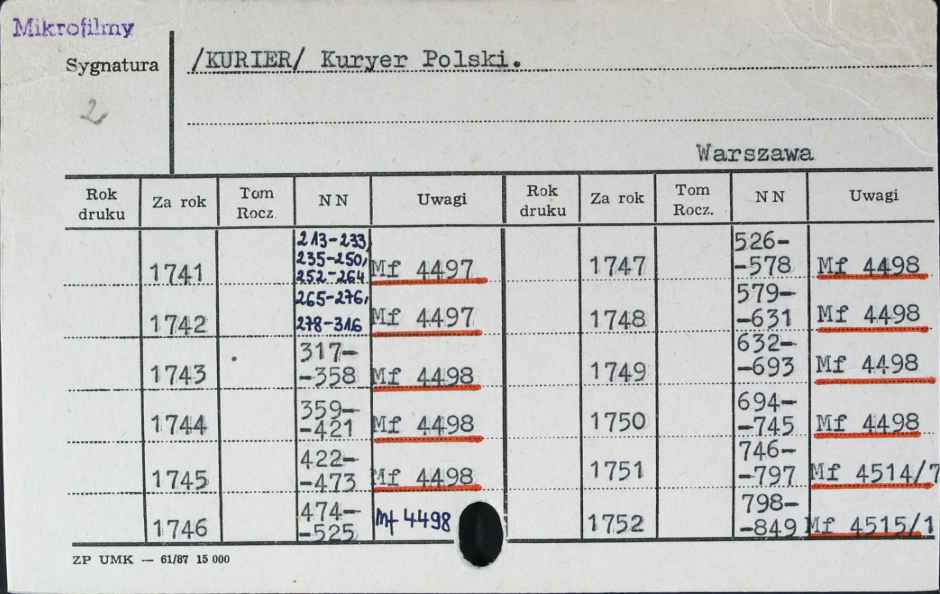 Mikrofilmy
Sygnatura
2
/KURIER/ Kuryer Polski.
Warszawa
Rok druku Za rok Tom Rocz. NN Uwagi Rok druku Za rok Tom Rocz. NN Uwagi
1741 213-233, 235-250, 252-264 Mf 4497 1747 526- -578 Mf 4498
1742 265-276, 278-316 Mf 4497 1748 579- -631 Mf 4498
1743 317- -358 Mf 4498 1749 632- -693 Mf 4498
1744 359- -421 Mf 4498 1750 694- -745 Mf 4498
1745 422- -473 Mf 4498 1751 746- -797 Mf 4514/7
1746 474- -525 Mf 4498 1752 798- -849 Mf 4515/1
ZP UMK — 61/87 15 000